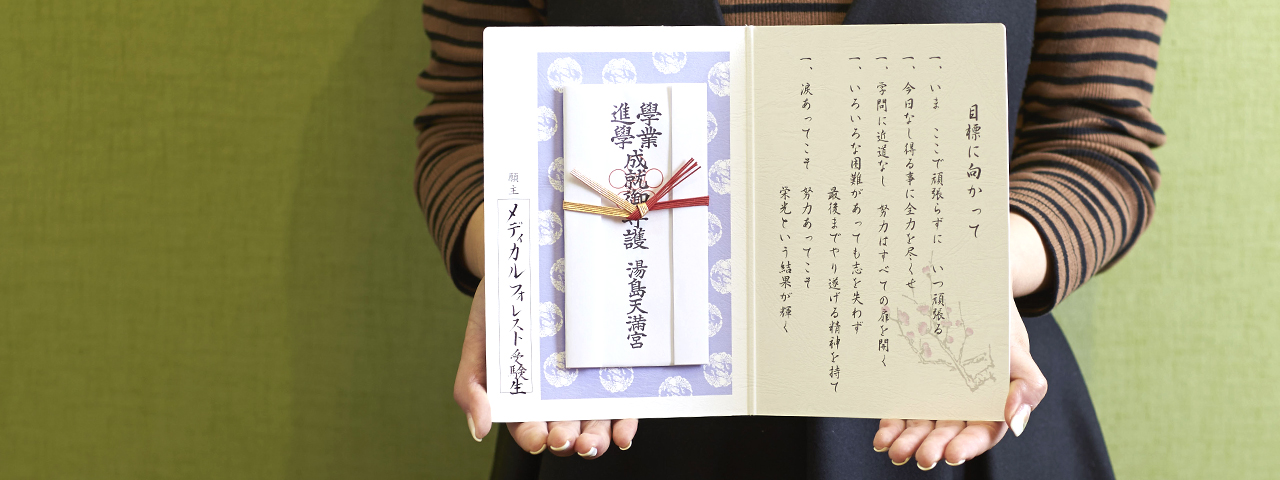 目標に向かって
一、いま ここで頑張らずに いつ頑張る
一、今日なし得る事に全力を尽くせ
一、学問に近道なし 努力はすべての扉を開く
一、いろいろな困難があっても志を失わず
最後までやり遂げる精神を持て
一、涙あってこそ 努力あってこそ
栄光という結果が輝く
學業
進學
成就御守護 湯島天満宮
願主
メディカルフォレスト受験生